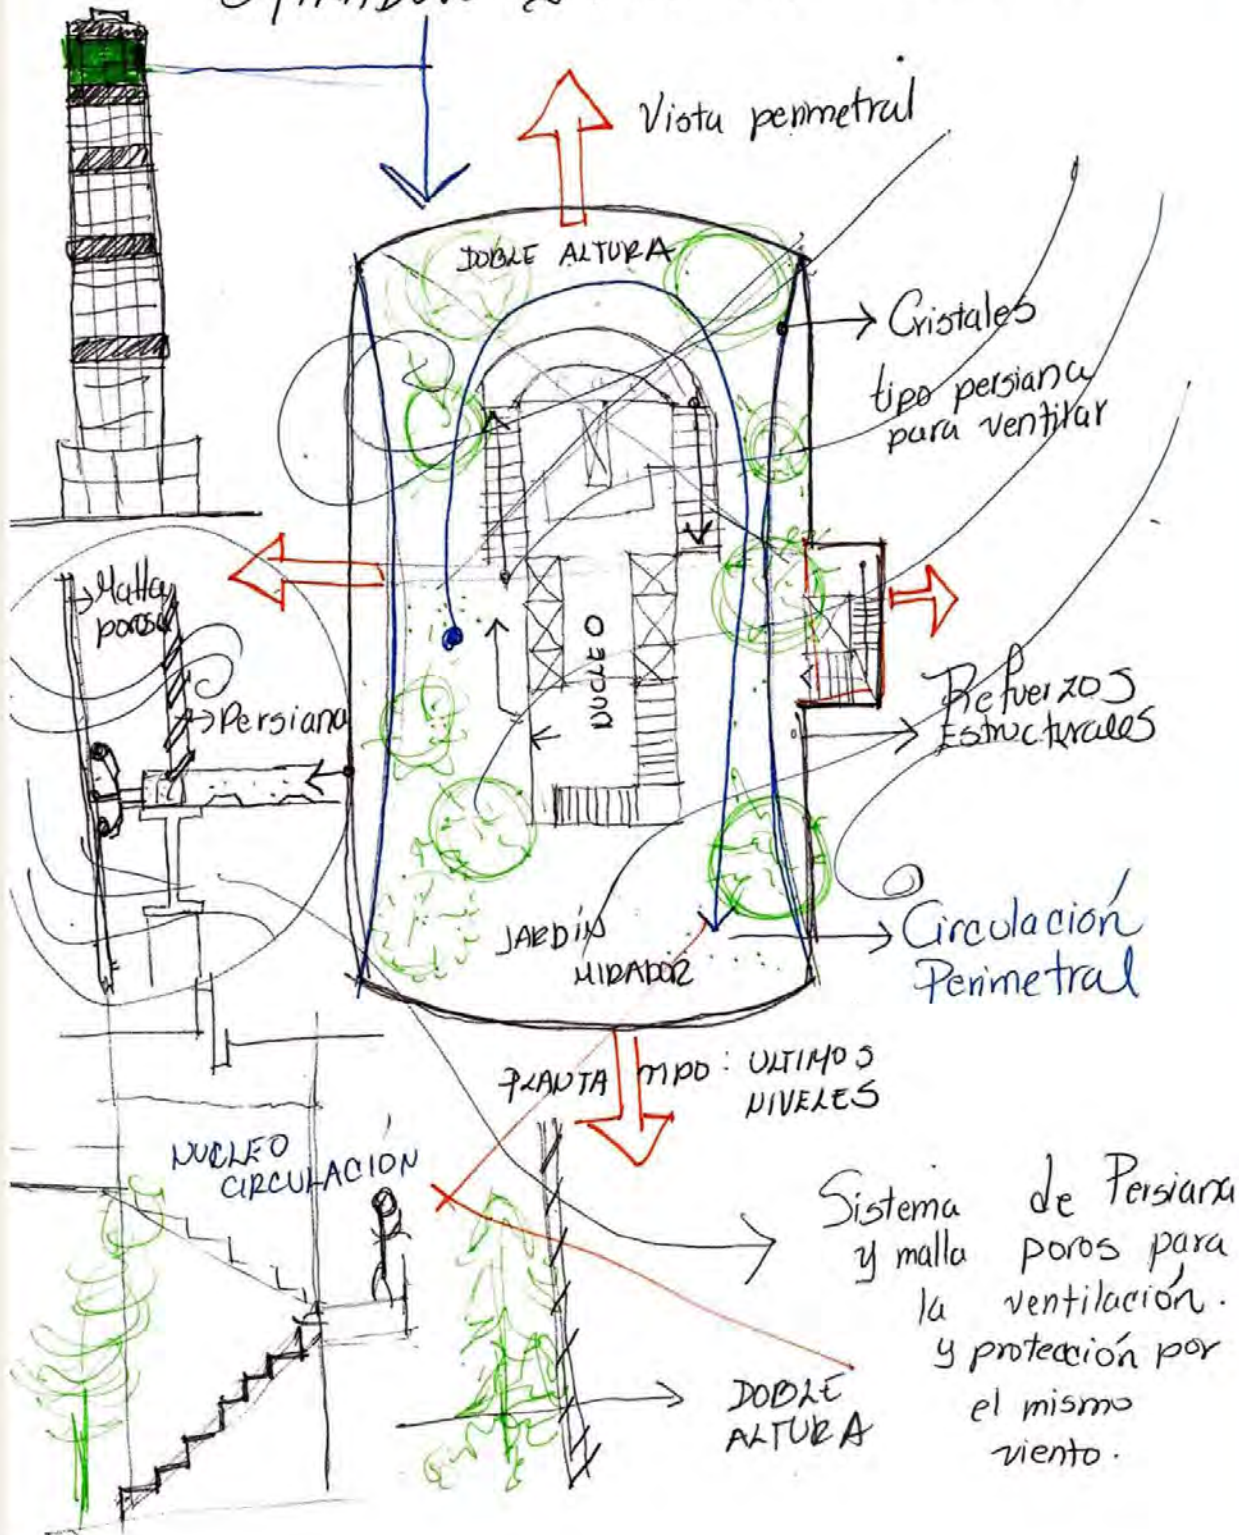 Vista perimetral
DOBLE ALTURA
Cristales
tipo persiana
para ventilar
Malla
porosa
Persiana
NUCLEO
Refuerzos
Estructurales
JARDÍN
MIRADOR
Circulación
Perimetral
PLANTA TIPO: ULTIMOS
NIVELES
NUCLEO
CIRCULACIÓN
Sistema de Persiana
y malla poros para
la ventilación.
y protección por
el mismo
viento.
DOBLE
ALTURA